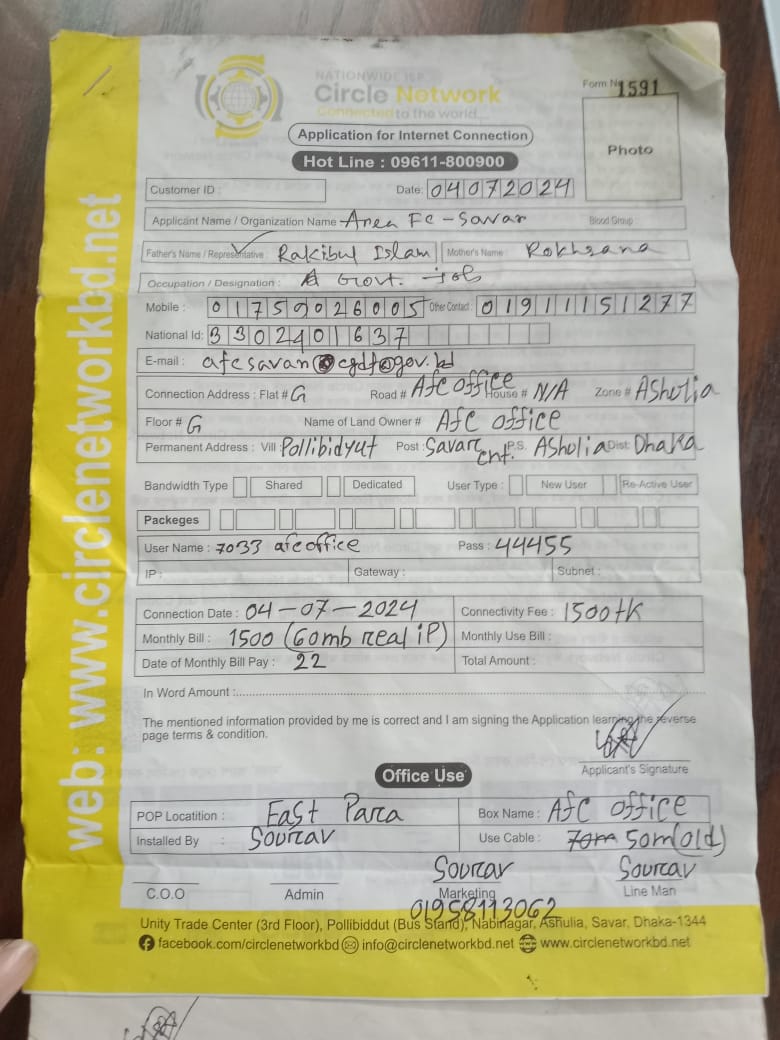 NATIONWIDE ISP
Circle Network
Connected to the world...
Form No 1591
Application for Internet Connection
Photo
Hot Line : 09611-800900
Customer ID : Date: 04072024
Applicant Name / Organization Name Area FC - Savar Blood Group :
Father's Name / Representative : Rakibul Islam Mother's Name : Rokhsana
Occupation / Designation : Govt. job
Mobile : 01759026005 Other Contact : 01911151277
National Id: 3302401637
E-mail :
Connection Address : Flat # G Road # Afc office House # N/A Zone # Asholia
Floor # G Name of Land Owner # AfC office
Permanent Address : Vill Pollibidyut Post : Savar Cnt. P.S. Asholia Dist: Dhaka
Bandwidth Type Shared Dedicated User Type : New User Re-Active User
Packeges
User Name : 7033 afcoffice Pass : 44455
IP : Gateway : Subnet :
Connection Date : 04-07-2024 Connectivity Fee : 1500tk
Monthly Bill : 1500 (60mb real iP) Monthly Use Bill :
Date of Monthly Bill Pay : 22 Total Amount :
In Word Amount :
The mentioned information provided by me is correct and I am signing the Application learning the reverse
page terms & condition.
Applicant's Signature
Office Use
POP Locatition : East Para Box Name : AfC office
Installed By : Sourav Use Cable : 70m 50m(old)
Sourav Sourav
C.O.O Admin Marketing Line Man
01958113062
Unity Trade Center (3rd Floor), Pollibiddut (Bus Stand), Nabinagar, Ashulia, Savar, Dhaka-1344
facebook.com/circlenetworkbd info@circlenetworkbd.net www.circlenetworkbd.net
web: www.circlenetworkbd.net